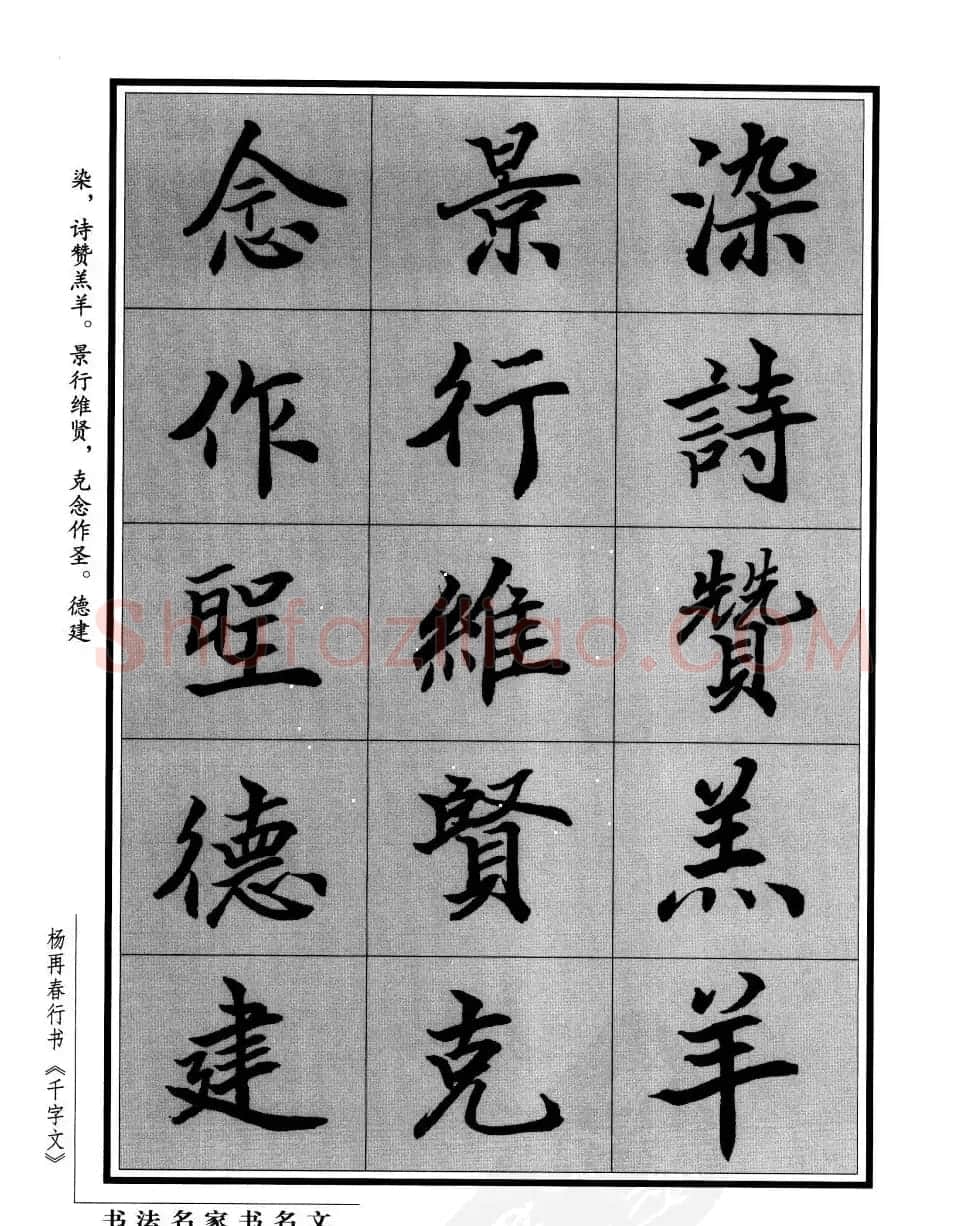 染詩贊羔羊
景行維賢克
念作聖德建
染，诗赞羔羊。景行维贤，克念作圣。德建
杨再春行书《千字文》
书法名家书名文
Shufaziliao.COM